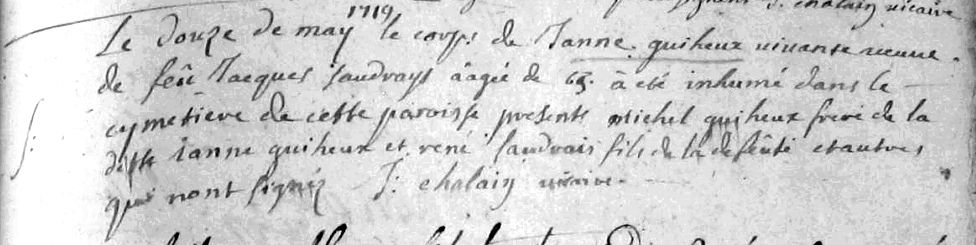 J: chalain vicaire
1719
Le douze de may le corps de Janne guiheux vivante veuve
de feü Jacques Jaudrays aâgée de 65. à été inhumé dans le
cymetiere de cette paroisse presents michel guiheux frere de la
ditte Janne guiheux et rené Jaudrais fils de la defünte et autres
qui nont signéz J: chalain vicaire.